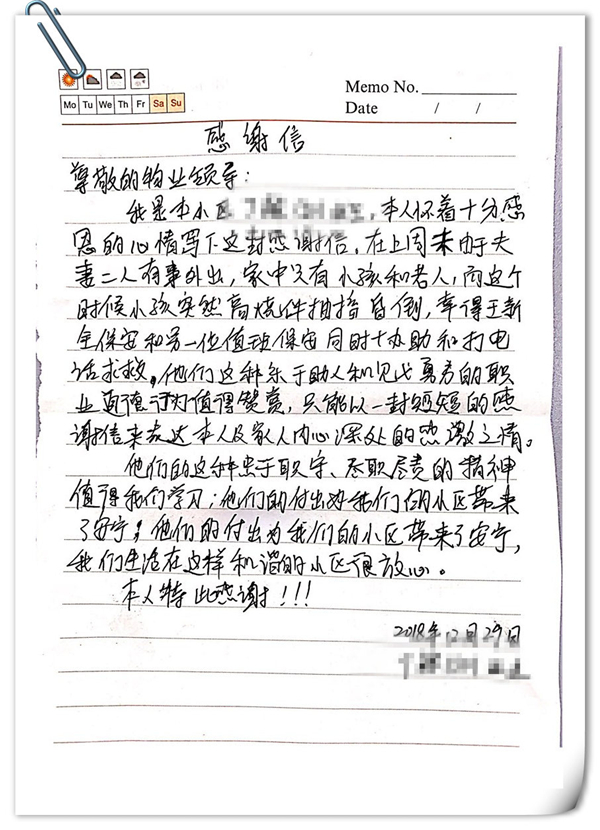 Mo Tu We Th Fr Sa Su
Memo No.
Date / /
感谢信
尊敬的物业领导:
我是本小区 ,本人怀着十分感
恩的心情写下这封感谢信,在上周末由于夫
妻二人有事外出,家中只有小孩和老人,而这个
时候小孩突然高烧伴抽搐昏倒,幸得王新
全保安和另一位值班保安同时协助和打电
话求救,他们这种乐于助人和见义勇为的职
业道德行为值得赞赏,只能以一封短短的感
谢信来表达本人及家人内心深处的感激之情。
他们的这种忠于职守、尽职尽责的精神
值得我们学习;他们的付出为我们的小区带来
了安宁,他们的付出为我们的小区带来了安宁,
我们生活在这样和谐的小区很放心。
本人特此感谢!!!
2018年12月29日